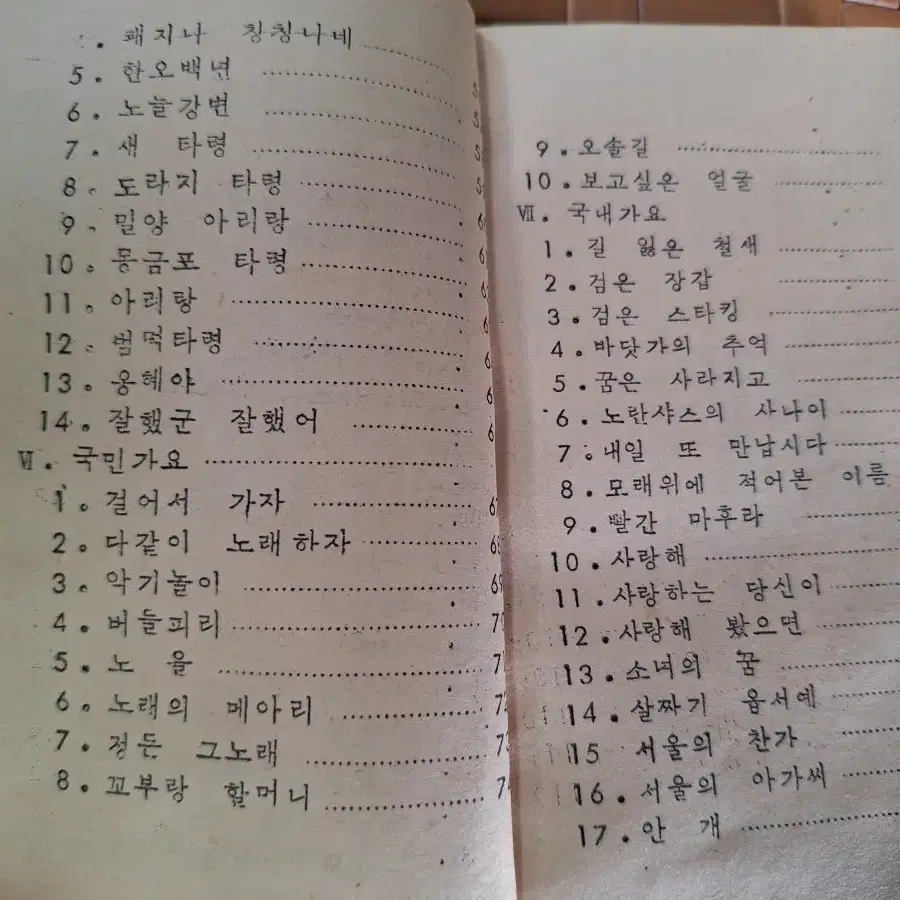 . 쾌지나 칭칭나네
5. 한오백년
6. 노늘강변
7. 새 타령
8. 도라지 타령
9. 밀양 아리랑
10. 몽금포 타령
11. 아리랑
12. 범벅타령
13. 옹헤야
14. 잘했군 잘했어
Ⅵ. 국민가요
1. 걸어서 가자
2. 다같이 노래하자
3. 악기놀이
4. 버들피리
5. 노 을
6. 노래의 메아리
7. 정든 그노래
8. 꼬부랑 할머니
9. 오솔길
10. 보고싶은 얼굴
Ⅶ. 국내가요
1. 길 잃은 철새
2. 검은 장갑
3. 검은 스타킹
4. 바닷가의 추억
5. 꿈은 사라지고
6. 노란샤스의 사나이
7. 내일 또 만납시다
8. 모래위에 적어본 이름
9. 빨간 마후라
10. 사랑해
11. 사랑하는 당신이
12. 사랑해 봤으면
13. 소녀의 꿈
14. 살짜기 옵서예
15 서울의 찬가
16. 서울의 아가씨
17. 안 개